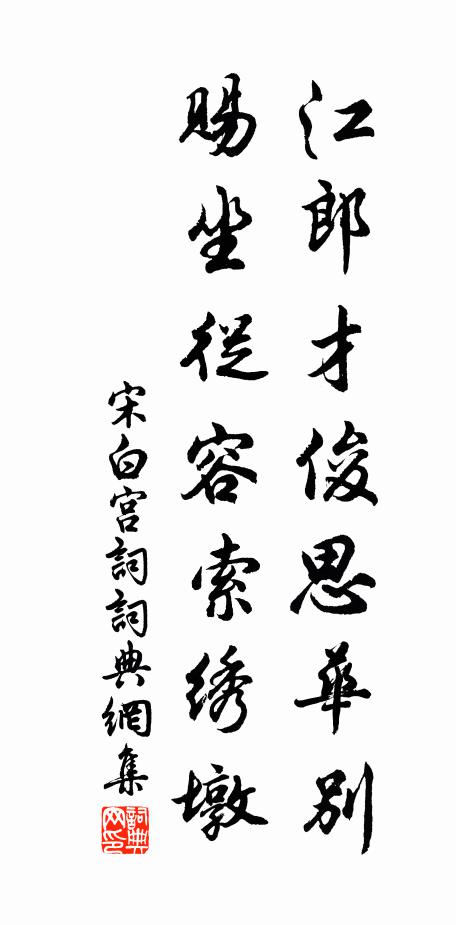 江郎才俊思華別
賜坐從容索綉墩
宋白宫詞詞典網集
詞典网印